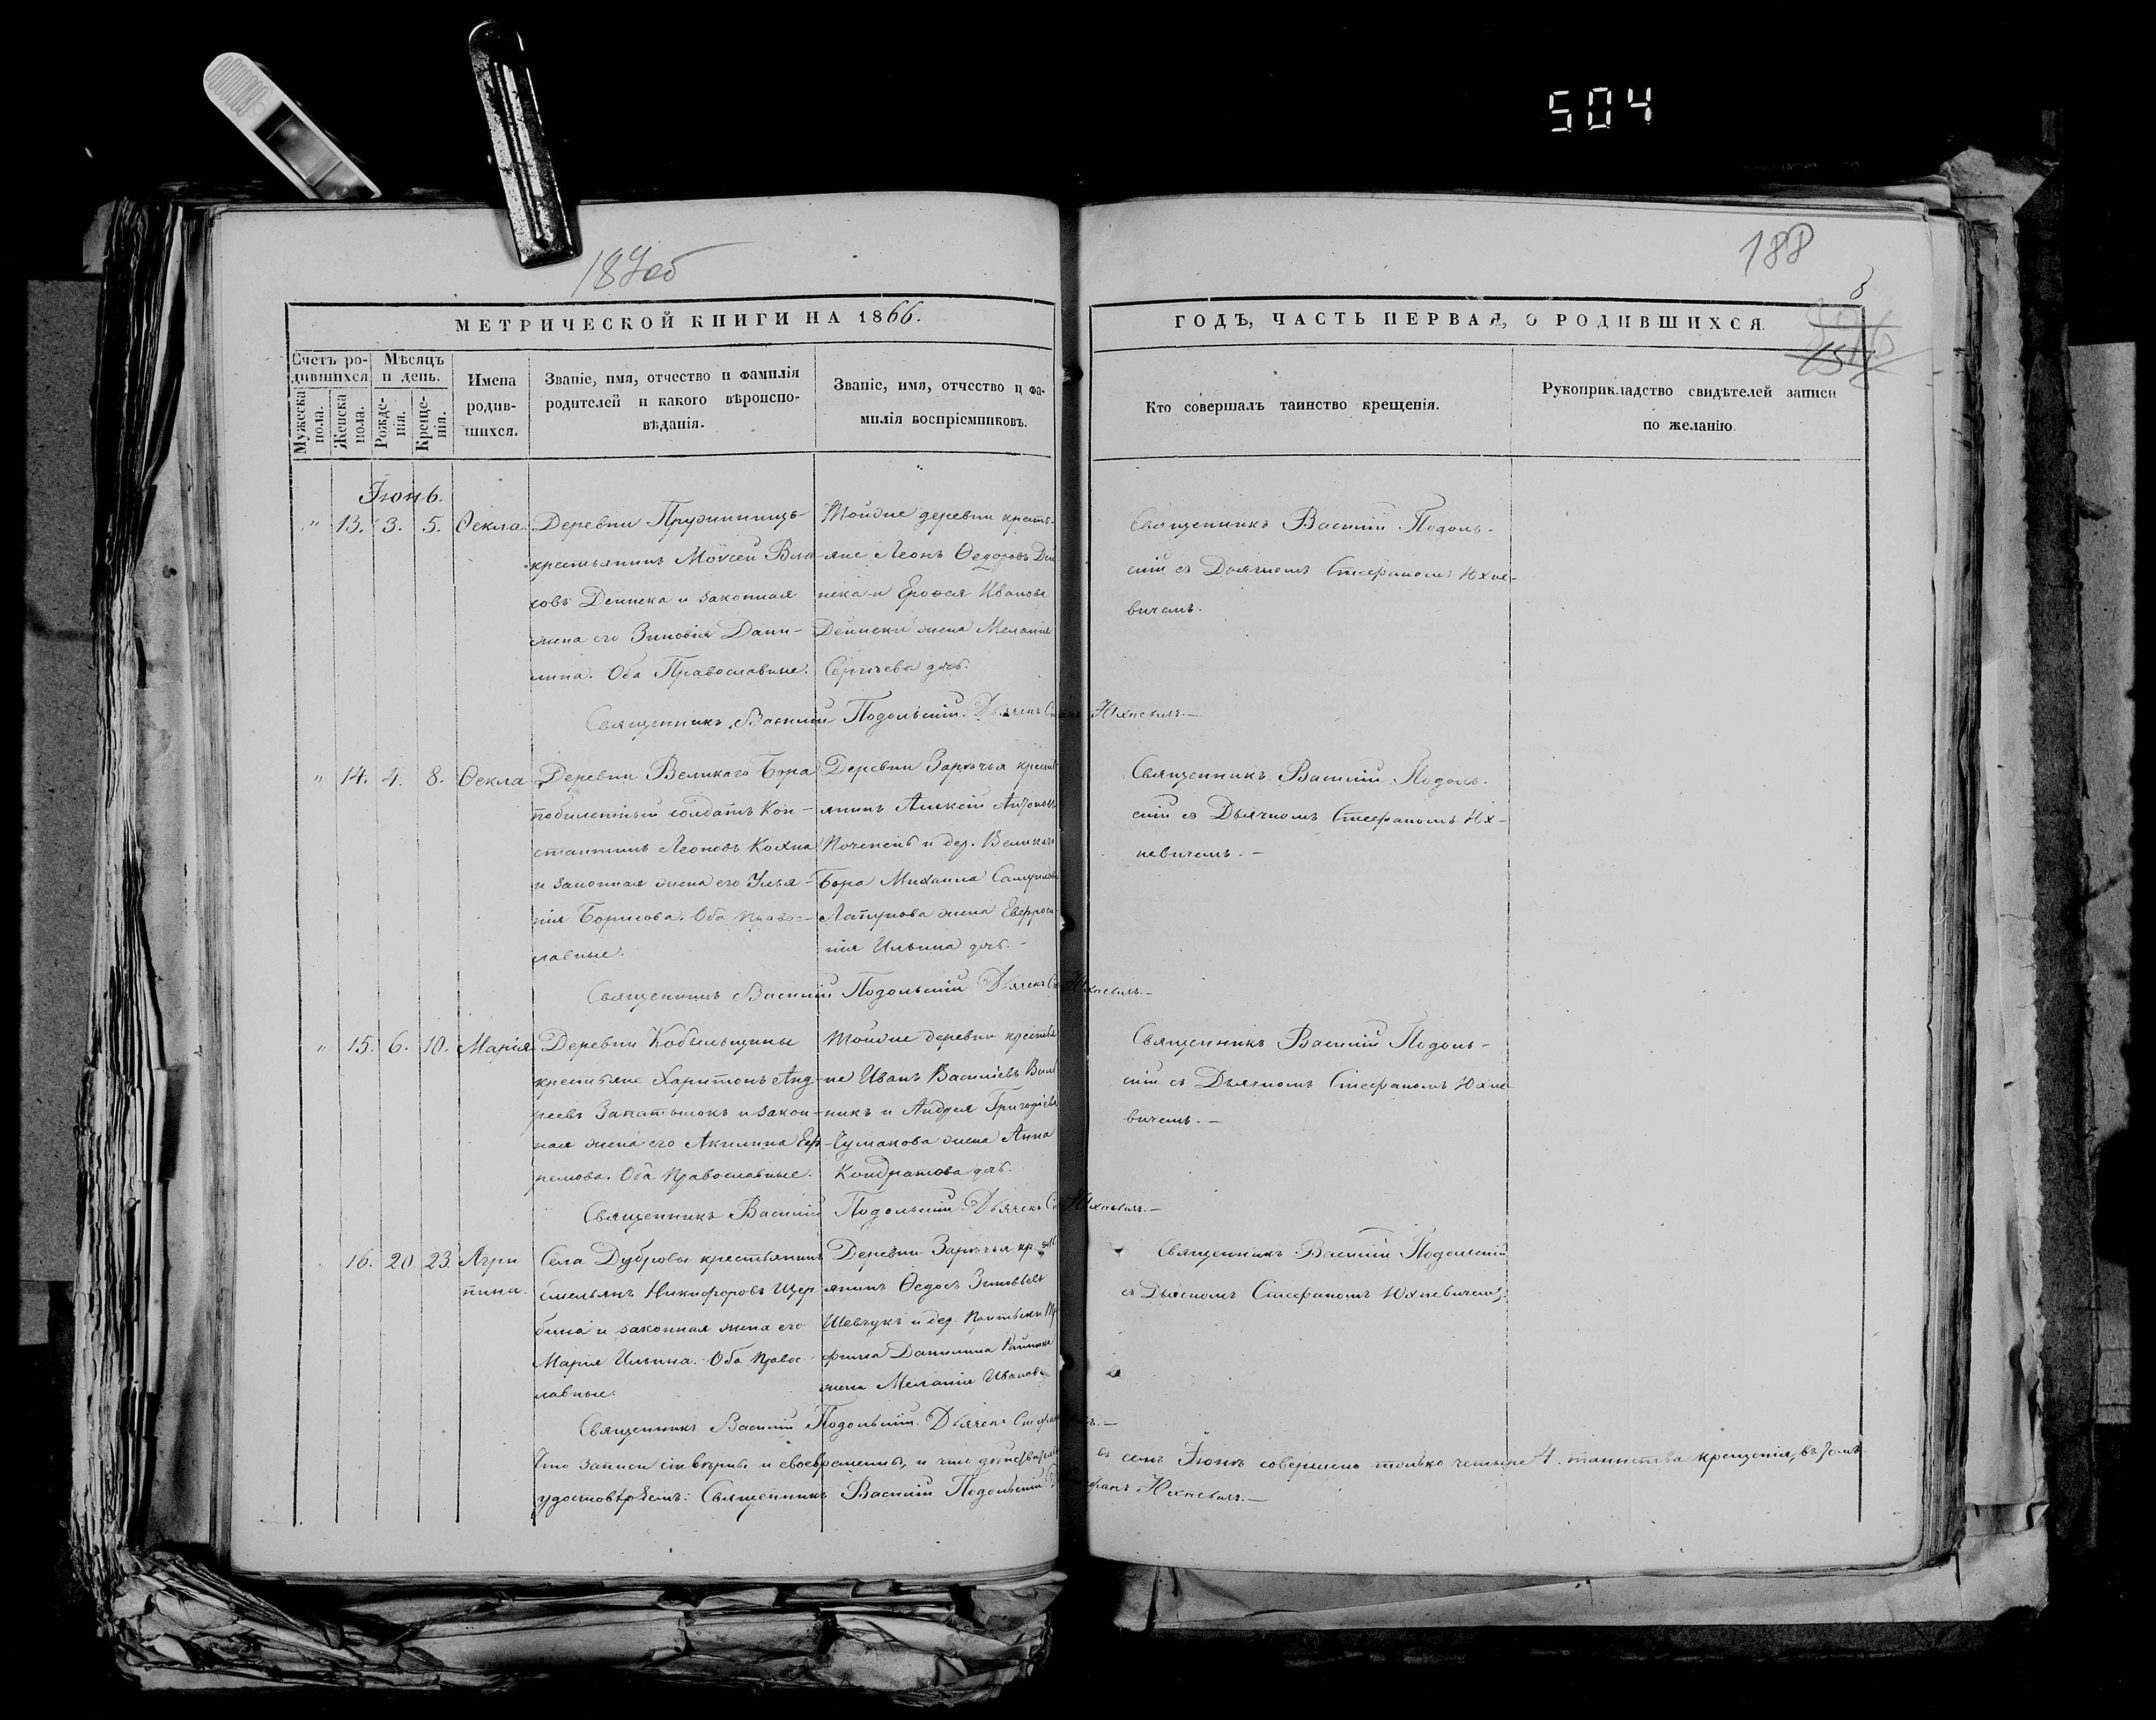 504
187об
188
8
МЕТРИЧЕСКОЙ КНИГИ НА 1866.
ГОДЪ, ЧАСТЬ ПЕРВАЯ, О РОДИВШИХСЯ.
Счетъ ро-
дившихся
Мужеска
пола.
Женска
пола.
Мѣсяцъ
и день.
Рожде-
нія.
Креще-
нія.
Имена
родив-
шихся.
Званіе, имя, отчество и фамилія
родителей и какого вѣроиспо-
вѣданія.
Званіе, имя, отчество и фа-
милія воспріемниковъ.
Кто совершалъ таинство крещенія.
Рукоприкладство свидѣтелей записи
по желанію.
Іюнь.
" 13. 3. 5. Ѳекла.
Деревни Пружинищъ
крестьянинъ Моѵсей Вла-
совъ Дейнека и законная
жена его Зиновія Дани-
лина. Оба Православные.
Тойже деревни кресть-
яне Леонъ Ѳедоровъ Дей
нека и Ерофея Иванова
Дейнеки жена Меланія
Сергѣева дочь.
Священникъ Василій Подоль-
скій съ Дьячкомъ Стефаномъ Юхне-
вичемъ.
Священникъ Василій Подольскій. Дьячекъ Юхневичъ.—
" 14. 4. 8. Ѳекла
Деревни Великаго Бора
побилетный солдатъ Кон-
стантинъ Леоновъ Кохна
и законная жена его Улья-
нія Борисова. Оба правос-
лавные.
Деревни Зарѣчья кресть
янинъ Алексій Антоновъ
и дер. Великаго
Бора Михаила Самуилова
Лапунова жена Евфроси-
нія Ильина дочь.-
Священникъ Василій Подоль-
скій съ Дьячкомъ Стефаномъ Юх-
невичемъ.-
Священникъ Василій Подольскій Дьячекъ Юхневичъ.—
" 15. 6. 10. Марія
Деревни Кобыльщины
крестьяне Харитонъ Анд-
реевъ Запатылокъ и закон-
ная жена его Акилина Еф-
ремова. Оба православные.
Тойже деревни крестья
не Иванъ Василіевъ
никъ и Андрея Григоріева
Чумакова жена Анна
Кондратова дочь.
Священникъ Василій Подоль-
скій съ Дьячкомъ Стефаномъ Юхне-
вичемъ.-
Священникъ Василій Подольскій. Дьячекъ Юхневичъ.—
16. 20 23. Агри
пина.
Села Дубровы крестьянинъ
Емельянъ Никифоровъ Щер
бина и законная жена его
Марія Ильина. Оба правос-
лавные.
Деревни Зарѣчья
янинъ Ѳедосъ Зиновьевъ
Шевчукъ и дер.
Данилина
жена Меланія Иванова
Священникъ Василій Подольскій
съ Дьячкомъ Стефаномъ Юхневичемъ.
Священникъ Василій Подольскій. Дьячекъ
Что записи сіи вѣрны и своевременны, и что дѣйствительно въ семъ Іюнѣ совершено только четыре 4. таинства крещенія, въ томъ
удостовѣряемъ: Священникъ Василій Подольскій Юхневичъ.—